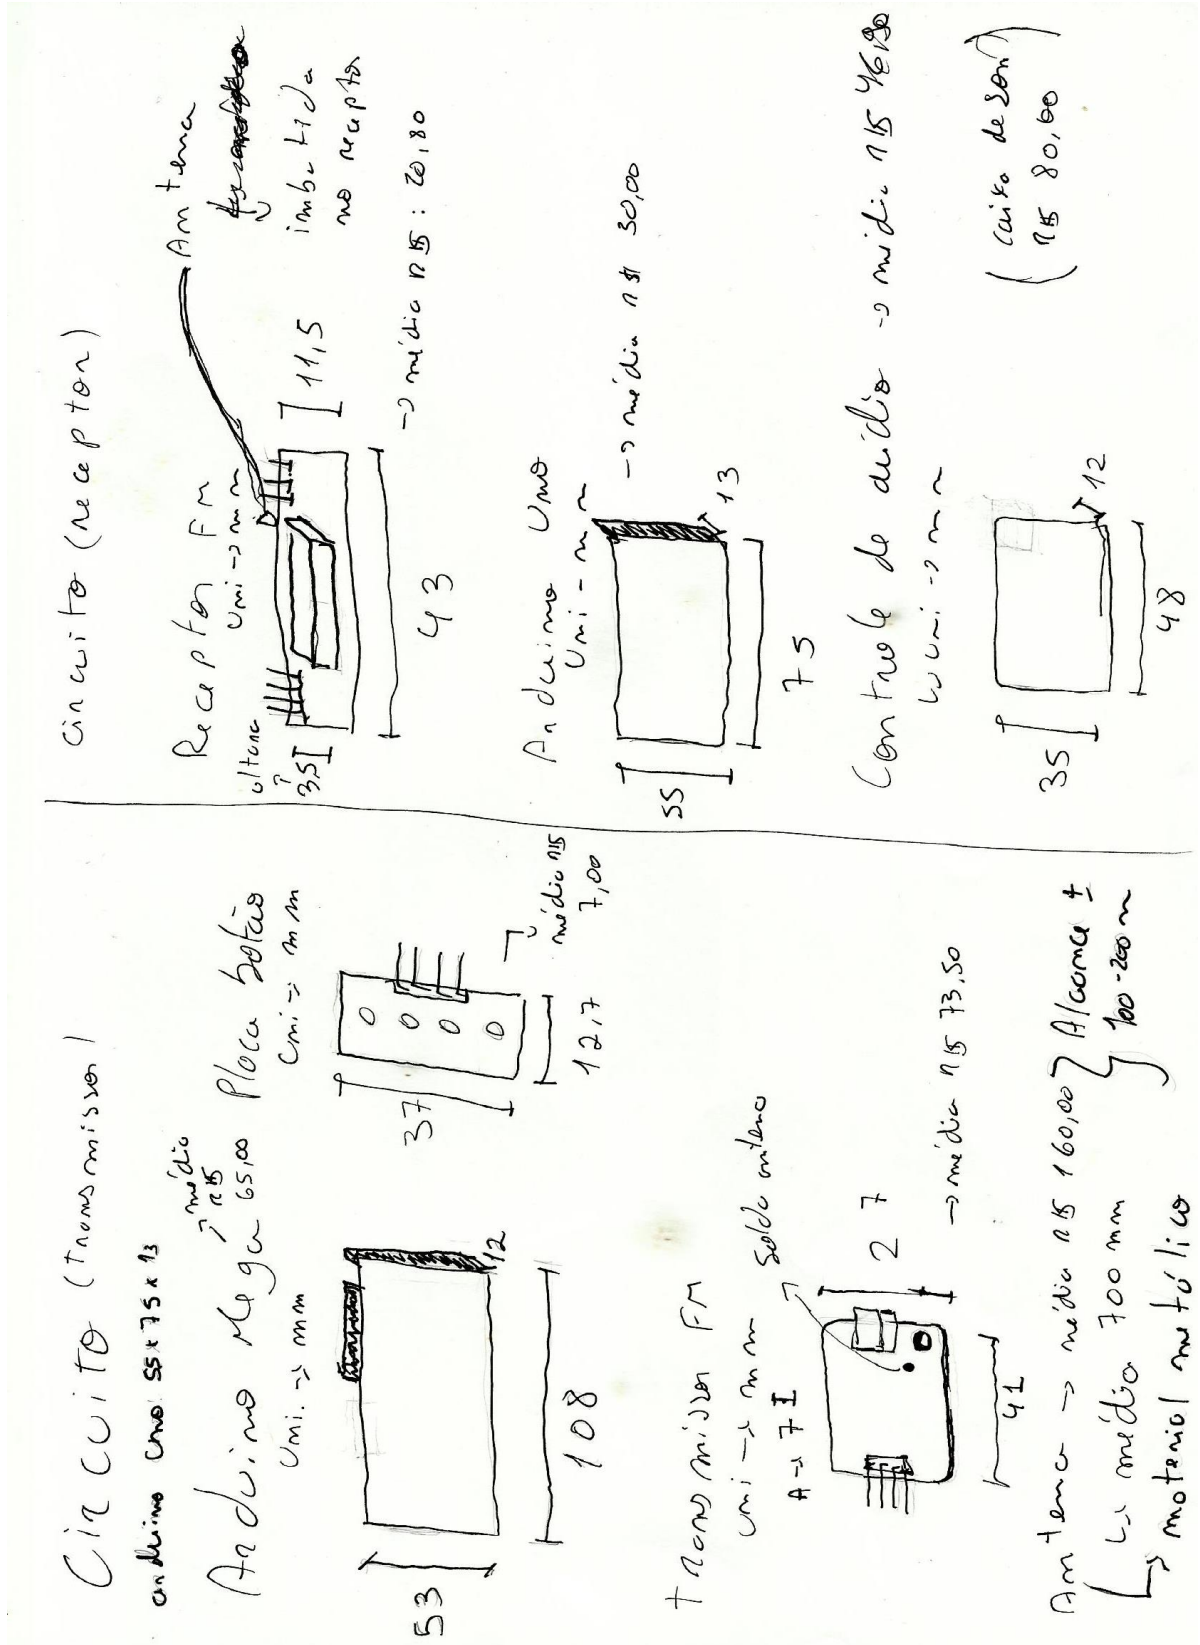 Circuito (transmissor)
arduino uno 55 x 75 x 13
Arduino Mega
→ média
R$
65,00
Uni. → mm
12
53
108
Placa botão
Uni → mm
37
12,7
média R$
7,00
transmissor FM
uni → mm
A → 7
Solda antena
27
41
→ média R$ 73,50
Antena → média R$ 160,00 } Alcance ±
100-200m
↳ média 700 mm
↳ material metálico
Circuito (receptor)
Receptor FM
Uni → mm
altura
↑
3,5
11,5
43
Antena
imbutida
no receptor
→ média R$: 20,80
Arduino Uno
Uni - mm
→ média R$ 30,00
55
13
75
Controle de áudio → média R$ 46,90
↳ uni → mm
35
12
48
(caixa de som)
R$ 80,00